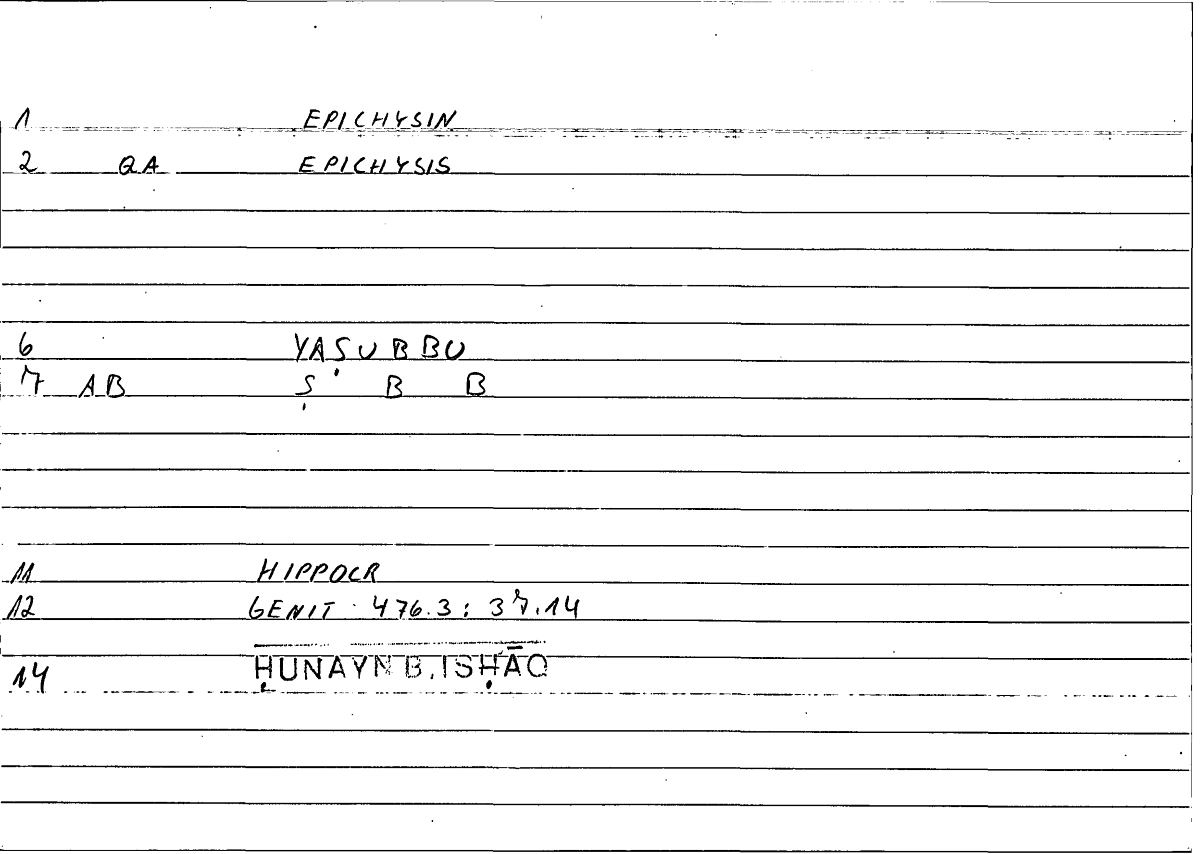 1 EPICHYSIN
2 QA EPICHYSIS
6 YAṢUBBU
7 AB Ṣ B B
11 HIPPOCR
12 GENIT 476.3: 37.14
14 ḤUNAYN B. ISḤĀQ